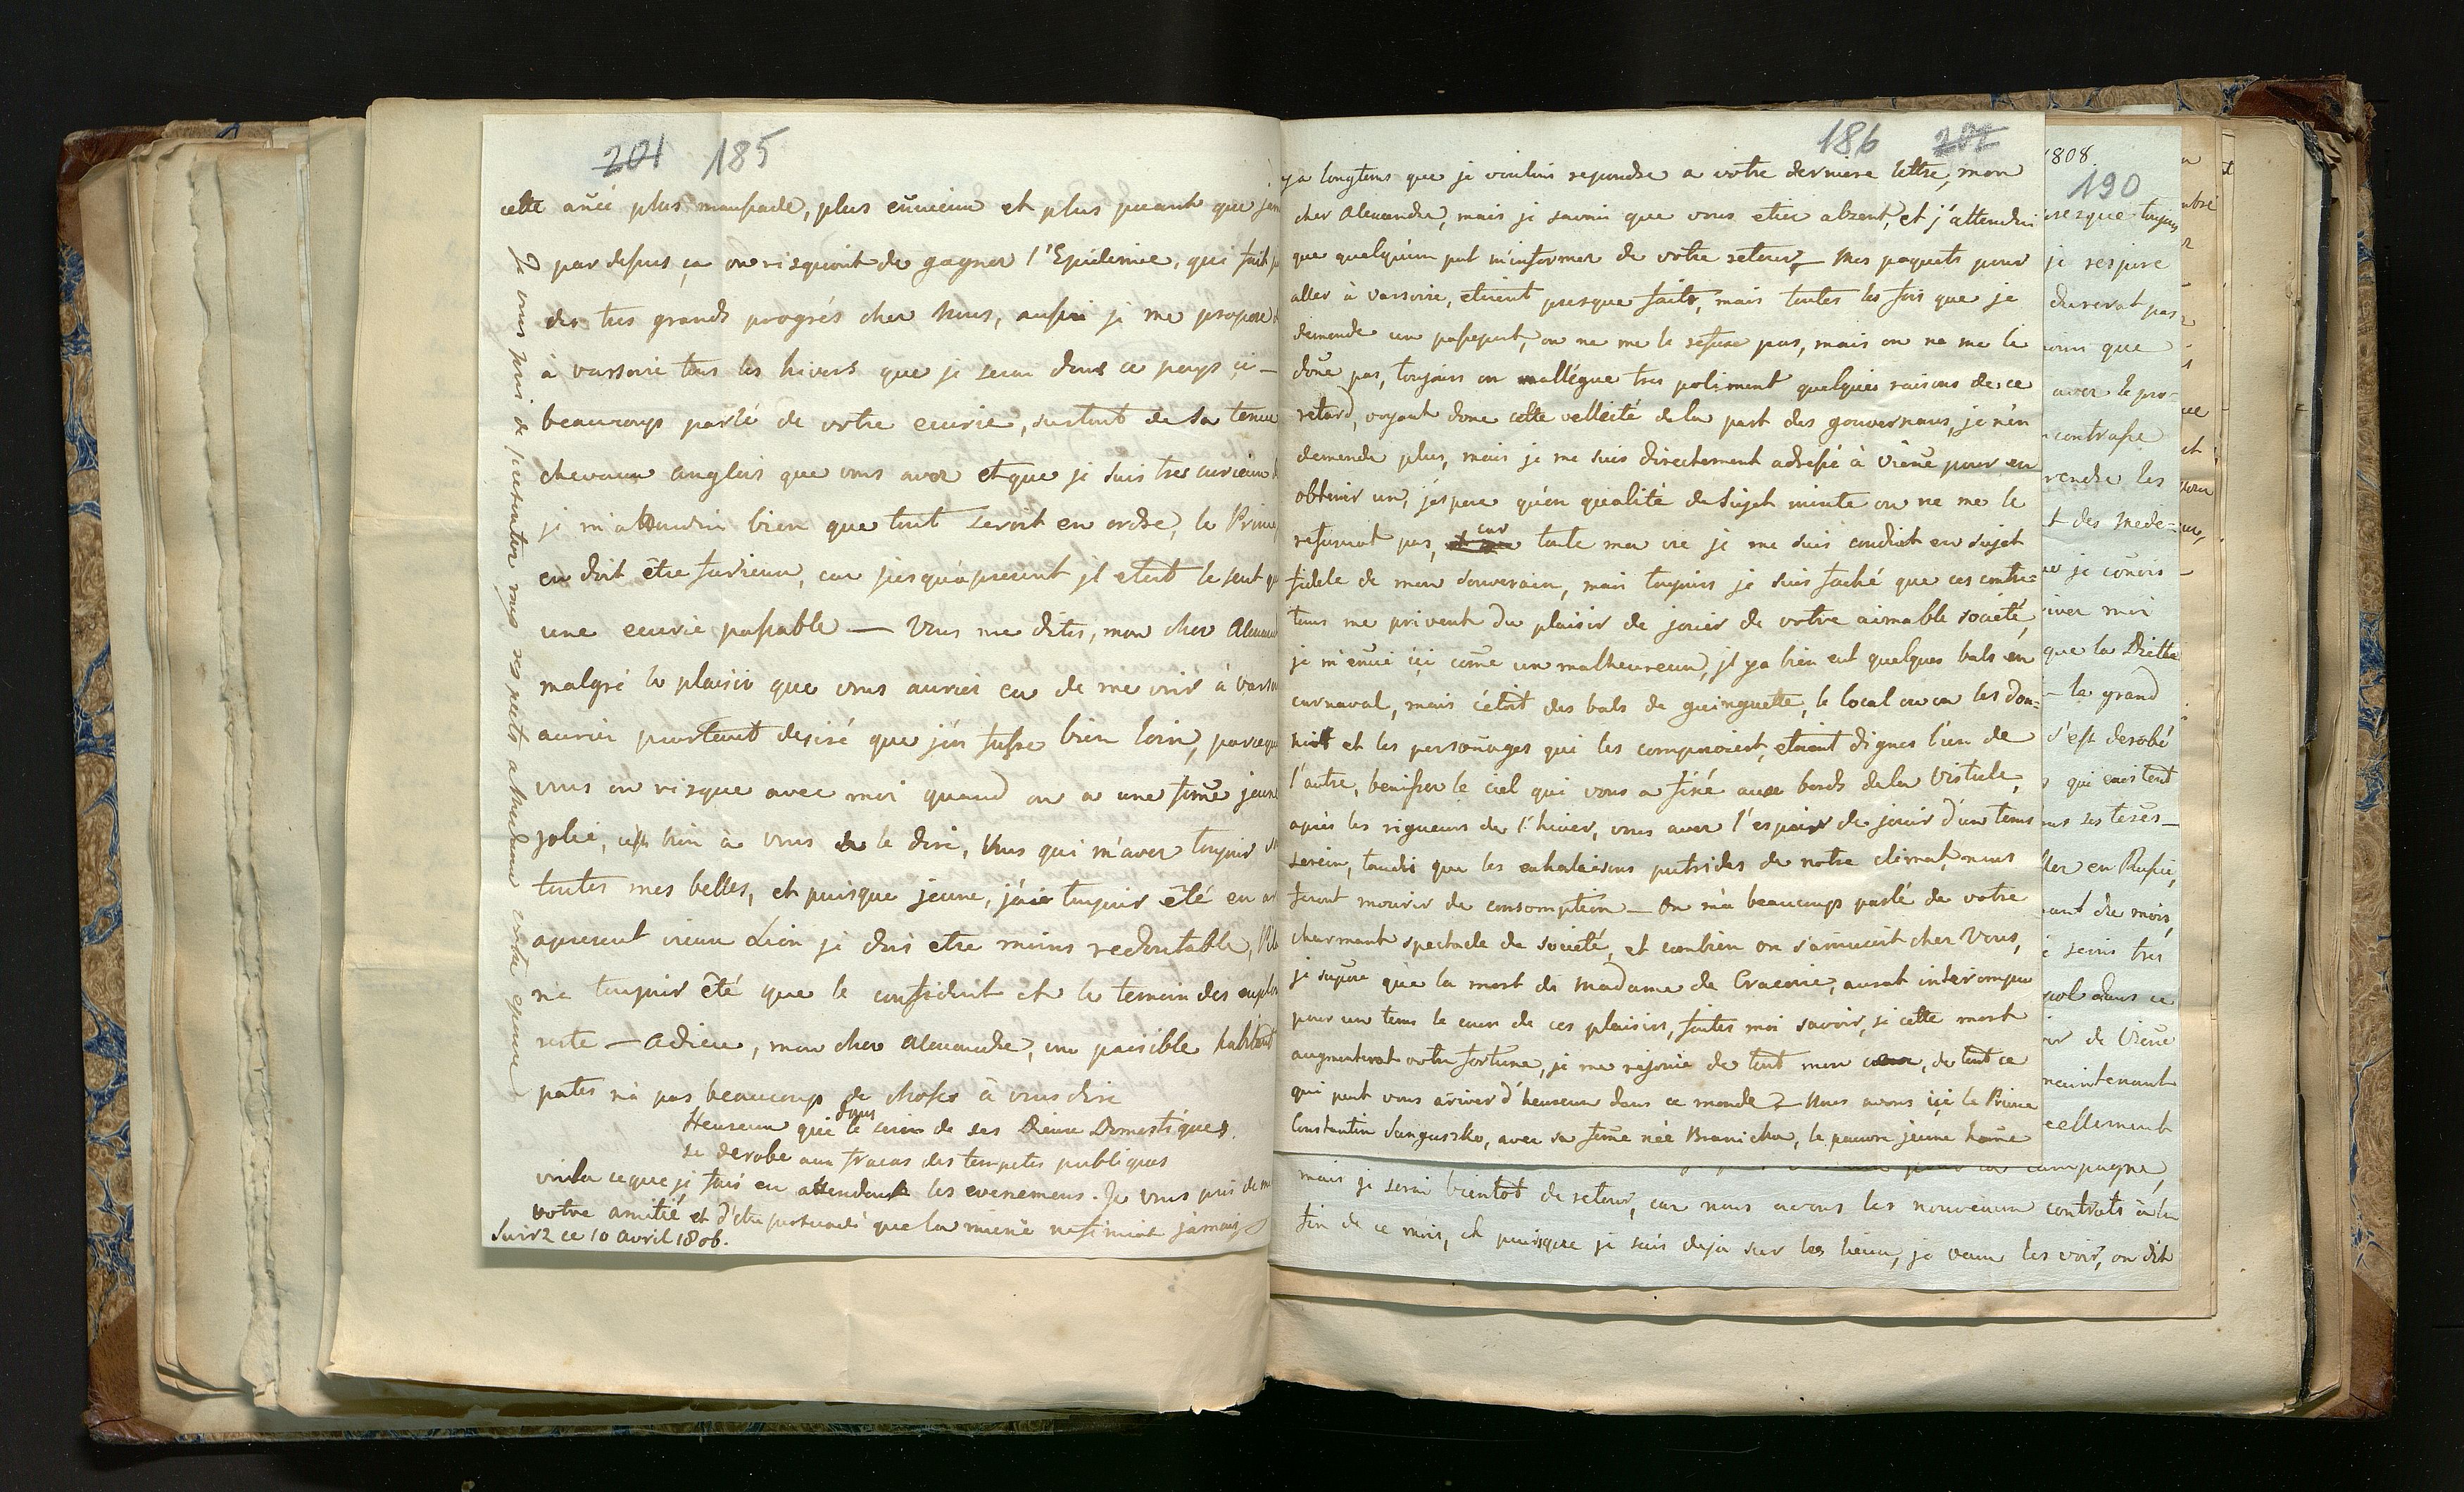 201 185
cette anēe plus maussade, plus enuieuse et plus puante que jam
par dessus ça on risquoit de gagner l'Epidemie, qui fait
des tres grands progrés chez Nous, aussi je me propose
à varsovie tous les hivers que je serai dans ce pays ci —
beaucoup parlé de votre ecurie, surtout de sa tenue
chevaux anglois que vous avez et que je suis tres curieux
je m'attendois bien que tout seroit en ordre, le Prince
en doit être furieux, car jusqu'apresent jl etoit le seul qu
une ecurie passable — Vous me dites, mon cher Alexand
malgré le plaisir que vous auriez eu de me voir à varso
auriez pourtant desiré que j'en fusse bien loin, parceque
vous on risque avec moi quand on a une feme jeune
jolie, c'est bien à vous de le dire, Vous qui m'avez toujour
toutes mes belles, et puisque jeune, j'ai toujour été en
apresent vieux Lion je dois etre moins redoutable,
n'a toujour été que le confident et le temoin des exploi
reste — adieu, mon cher alexandre, un paisible habitant
pates n'a pas beaucoup de choses à vous dire
Heureux qui dans le sein de ses Dieux Domestiques
se derobe aux fracas des tempetes publiques
voila ceque je fais en attendant les evenemens. Je vous prie de
votre amitié et d'etre persuadé que la miene nefinirat jamais
ce 10 avril 1806.
Je vous prie de presenter mes respects a Madame votre epouse
186 202
y'a longtems que je voulois repondre a votre derniere lettre, mon
cher Alexandre, mais je savois que vous etiez absent, et j'attendois
que quelqu'un put m'informer de votre retour — Mes paquets pour
aller à Varsovie, etoient presque faits, mais toutes les fois que je
demande un passeport, on ne me le refuse pas, mais on ne me le
done pas, toujours on m'allégue tres poliment quelques raisons de ce
retard, voyant donc cette velleité de la part des gouvernans, je n'en
demande plus, mais je me suis directement adressé à Viene pour en
obtenir un, j'espere qu'en qualité de Sujet mixte on ne me le
refuserat pas, car toute ma vie je me suis conduit en sujet
fidele de mon Souverain, mais toujours je suis faché que ces contre=
tems me privent du plaisir de jouir de votre aimable societé,
je m'enuie içi come un malheureux, jl ya bien eut quelques bals en
carnaval, mais c'étoit des bals de guinguette, le local ou on les don=
noit et les personages qui les composoient, etoient dignes l'un de
l'autre, benissez le ciel qui vous a fixé aux bords de la Vistule,
après les rigueurs de l'hiver, vous avez l'espoir de jouir d'un tems
serein, tandis que les exhalaisons putrides de notre climat, nous
feront mourir de consomption — On m'a beaucoup parlé de votre
charmant spectacle de societé, et combien on s'amusoit chez Vous,
je supose que la mort de Madame de Cracovie, aurat interompu
pour un tems le cours de ces plaisirs, faites moi savoir, si cette mort
augmenterat votre fortune, je me rejouie de tout mon cœur, de tout ce
qui peut vous ariver d'heureux dans ce monde — Nous avons içi le Prince
Constantin Sanguszko, avec sa feme née Branicka, le pauvre jeune home
1808.
190
presque toujours
je respire
durerat pas
que
avec le pro=
contrasse
rendre les
t des Mede=
je conois
iver moi
que la Diette
— le grand
s'est derobé
qui existent
ses teres —
ller en Russie,
ant de mois,
serois trés
dans ce
de Viene
maintenant
cellement
campagne,
mais je serai bientot de retour, car nous avons les nouveaux contrats à la
fin de ce mois, et puisque je suis deja sur les lieux, je veux les voir, on dit